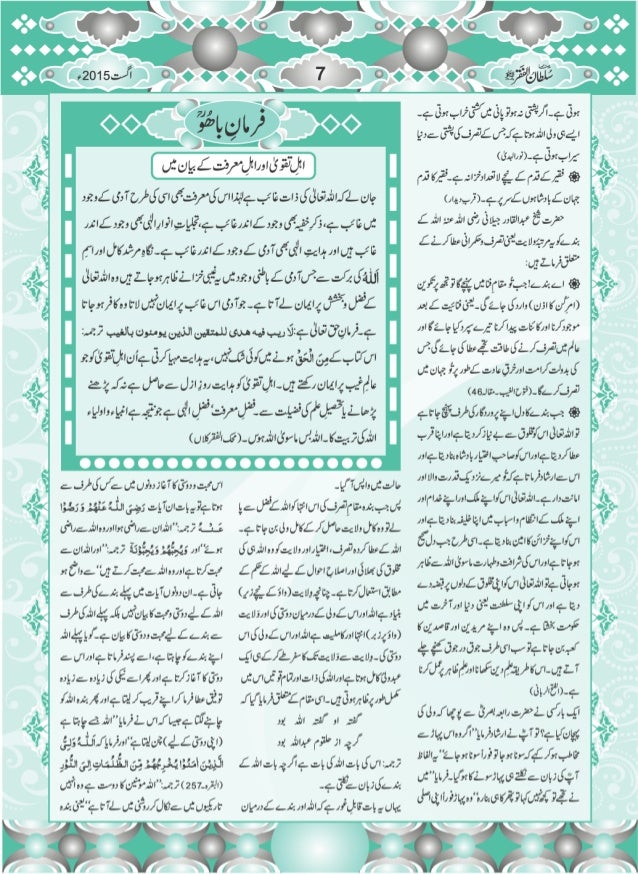 سُلطان الفَقر
7
اگست 2015ء
ہوتی ہے۔ اگر پشتی نہ ہو تو پانی میں کشتی خراب ہوتی ہے۔
ایسے ہی ولی اللہ ہوتا ہے کہ جس کے تصرف کی پشتی سے دنیا
سیراب ہوتی ہے۔ (نور الہدیٰ)
فقیر کے قدم کے نیچے لاتعداد خزانہ ہے۔ فقیر کا قدم
جہان کے بادشاہوں کے سر پر ہے۔ (قرب دیدار)
حضرت شیخ عبدالقادر جیلانی رضی اللہ عنہٗ اللہ کے
بندے کو یہ مرتبۂ ولایت یعنی تصرف و حکمرانی عطا کرنے کے
متعلق فرماتے ہیں:
اے بندے! جب تُو مقامِ فنا میں پہنچے گا تو تجھ پر تکوین
(امرِ کُن کا اذن) وارد کی جائے گی۔ یعنی فنائیت کے بعد
موجود کرنا اور کائنات پیدا کرنا تیرے سپرد کیا جائے گا اور
عالم میں تصرف کرنے کی طاقت تجھے عطا کی جائے گی جس
کی بدولت کرامت اور خرقِ عادت کے طور پر تُو جہان میں
تصرف کرے گا۔ (فتوح الغیب۔ مقالہ 46)
جب بندے کا دل اپنے پروردگار کی طرف پہنچ جاتا ہے
تو اللہ تعالیٰ اس کو مخلوق سے بے نیاز کر دیتا ہے اور اپنا قرب
عطا کر دیتا ہے اور اس کو صاحبِ اختیار بادشاہ بنا دیتا ہے اور
اس سے ارشاد فرماتا ہے کہ تُو میرے نزدیک قدرت والا اور
امانت دار ہے۔ اللہ تعالیٰ اس کو اپنے ملک اور اپنے خدام اور
اپنے ملک کے انتظام و اسباب میں اپنا خلیفہ بنا دیتا ہے اور
اس کو اپنے خزائن کا امین بنا دیتا ہے۔ اسی طرح جب دل صحیح
ہو جاتا ہے اور اس کی شرافت و طہارت ماسویٰ اللہ سے ظاہر
ہو جاتی ہے تو اللہ تعالیٰ اس کو اپنی مخلوق کے دلوں پر قبضہ دے
دیتا ہے اور اس کو اپنی سلطنت یعنی دنیا اور آخرت میں
حکومت بخشتا ہے۔ پس وہ اپنے مریدین اور قاصدین کا
کعبہ بن جاتا ہے تو سب اس کی طرف جوق در جوق کھنچے چلے
آتے ہیں۔ اس کا طریقہ علمِ دین سکھانا اور علمِ ظاہر پر عمل کرنا
ہے۔ (الفتح الربانی)
ایک بار کسی نے حضرت رابعہ بصریؒ سے پوچھا کہ ولی کی
پہچان کیا ہے؟ تو آپؒ نے ارشاد فرمایا ”اگر وہ اس پہاڑ سے
مخاطب ہو کر کہے کہ سونا ہو جا تو فوراً سونا ہو جائے“ یہ الفاظ
آپؒ کی زبان سے نکلتے ہی پہاڑ سونے کا ہو گیا۔ فرمایا ”میں
نے تجھے نہیں کہا تھا کہ سونا بن“ تو پہاڑ فوراً اپنی اصلی
فرمانِ باھُوؒ
اہلِ تقویٰ اور اہلِ معرفت کے بیان میں
جان لے کہ اللہ تعالیٰ کی ذات غائب ہے لہٰذا اس کی معرفت بھی اسی طرح آدمی کے وجود
میں غائب ہے، ذکرِ خفیہ بھی وجود کے اندر غائب ہے، تجلیاتِ انوارِ الٰہی بھی وجود کے اندر
غائب ہیں اور ہدایتِ الٰہی بھی آدمی کے وجود کے اندر غائب ہے۔ نگاہِ مرشد کامل اور اسمِ
اَللہُ کی برکت سے جس آدمی کے باطنی وجود میں یہ غیبی خزانے ظاہر ہو جاتے ہیں وہ اللہ تعالیٰ
کے فضل و بخشش پر ایمان لے آتا ہے۔ جو آدمی اس غائب پر ایمان نہیں لاتا وہ کافر ہو جاتا
ہے۔ فرمانِ حق تعالیٰ ہے: لَا ریب فیہ ھدی للمتقین الذین یومنون بالغیب ترجمہ:
اس کتاب کے مِنَ الْحَقِّ ہونے میں کوئی شک نہیں، یہ ہدایت مہیا کرتی ہے اُن اہلِ تقویٰ کو جو
عالمِ غیب پر ایمان رکھتے ہیں۔ اہلِ تقویٰ کو ہدایت روزِ ازل سے حاصل ہے نہ کہ پڑھنے
پڑھانے یا تحصیلِ علم کی فضیلت سے۔ فضلِ معرفت، فضلِ الٰہی ہے جو نتیجہ ہے انبیاء و اولیاء
اللہ کی تربیت کا۔ اللہ بس ماسویٰ اللہ ہوس۔ (محک الفقر کلاں)
حالت میں واپس آ گیا۔
پس جب بندہ مقامِ تصرف کی اس انتہا کو اللہ کے فضل سے پا
لے تو وہ کامل ولایت حاصل کر کے کامل ولی بن جاتا ہے۔
اللہ کے عطا کردہ تصرف، اختیار اور ولایت کو وہ اللہ ہی کی
مخلوق کی بھلائی اور اصلاحِ احوال کے لیے اللہ کے حکم کے
مطابق استعمال کرتا ہے۔ چنانچہ وِلایت (واؤ کے نیچے زیر)
بنیاد ہے اللہ اور اس کے ولی کے درمیان دوستی کی اور وَلایت
(واؤ پر زبر) انتہا اور کاملیت ہے اللہ اور اس کے ولی کی اس
دوستی کی۔ وِلایت سے وَلایت تک کا سفر طے کر کے ہی ایک
عبد ولیٔ کامل ہوتا ہے اور اللہ کی ذات اور تمام قوتیں اس میں
مکمل طور پر ظاہر ہوتی ہیں۔ اسی مقام کے متعلق فرمایا گیا کہ
گفتہ او گفتہ اللہ بود
گرچہ از حلقوم عبداللہ بود
ترجمہ: اس کی بات اللہ کی بات ہے اگرچہ یہ بات اللہ کے
بندے کی زبان سے نکلتی ہے۔
یہاں یہ بات قابلِ غور ہے کہ اللہ اور بندے کے درمیان
اس محبت و دوستی کا آغاز دونوں میں سے کس کی طرف سے
ہوتا ہے تو یہ بات ان آیات رَضِیَ اللّٰہُ عَنْھُمْ وَرَضُوْا
عَنْہُ ترجمہ: ”اللہ ان سے راضی ہوا اور وہ اللہ سے راضی
ہوئے“ اور یُحِبُّھُمْ وَیُحِبُّوْنَہٗ ترجمہ: ”اور اللہ ان سے
محبت کرتا ہے اور وہ اللہ سے محبت کرتے ہیں“ سے واضح ہو
جاتی ہے۔ ان دونوں آیات میں پہلے بندے کی طرف سے
اللہ کے لیے دوستی و محبت کا بیان نہیں بلکہ پہلے اللہ کی طرف
سے بندے کے لیے محبت و دوستی کا بیان ہے۔ گویا پہلے اللہ
اپنے بندے کو چاہتا ہے، اسے پسند فرماتا ہے اور اس سے
دوستی کا آغاز کرتا ہے اور پھر اسے نیکی کی زیادہ سے زیادہ
توفیق عطا فرما کر اپنے قریب کر لیتا ہے اور پھر بندہ اللہ کو
چاہنے لگتا ہے جیسا کہ اس نے فرمایا ”اللہ جسے چاہتا ہے
(اپنی دوستی کے لیے) چن لیتا ہے“ اور فرمایا کہ اَللّٰہُ وَلِیُّ
الَّذِیْنَ اٰمَنُوْا یُخْرِجُھُمْ مِّنَ الظُّلُمٰتِ اِلَی النُّوْرِ
(البقرہ۔257) ترجمہ: ”اللہ مومنین کا دوست ہے وہ انہیں
تاریکیوں میں سے نکال کر روشنی میں لے آتا ہے“ یعنی بندہ